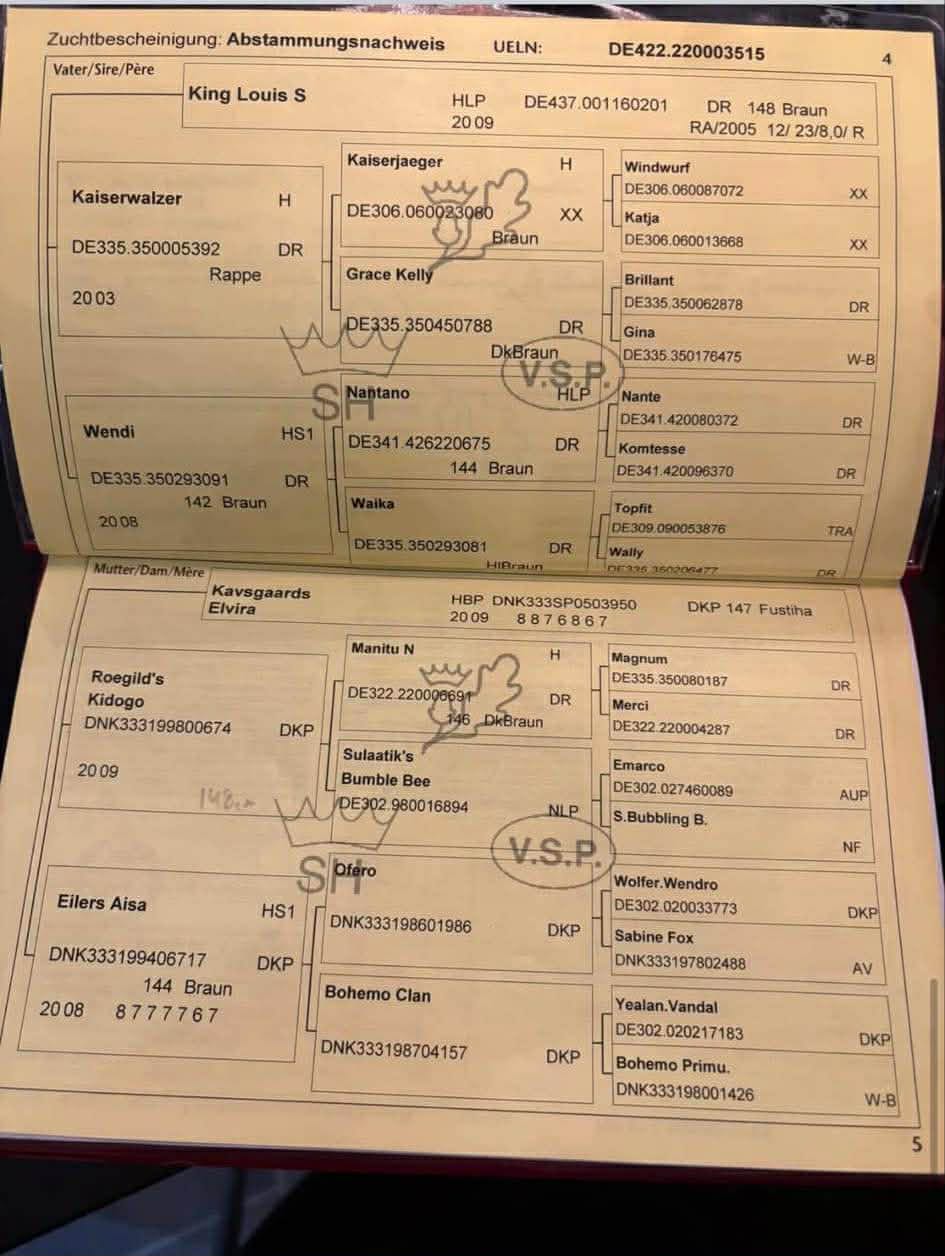 Zuchtbescheinigung: Abstammungsnachweis UELN: DE422.220003515 4
Vater/Sire/Père
King Louis S HLP DE437.001160201 DR 148 Braun
20 09 RA/2005 12/ 23/8,0/ R
Kaiserwalzer H
DE335.350005392 DR
Rappe
20 03
Kaiserjaeger H
DE306.060023080 XX
Braun
Windwurf
DE306.060087072 XX
Katja
DE306.060013668 XX
Grace Kelly
DE335.350450788 DR
DkBraun
Brillant
DE335.350062878 DR
Gina
DE335.350176475 W-B
SH
V.S.P.
Wendi HS1
DE335.350293091 DR
142 Braun
20 08
Nantano HLP
DE341.426220675 DR
144 Braun
Nante
DE341.420080372 DR
Komtesse
DE341.420096370 DR
Waika
DE335.350293081 DR
HlBraun
Topfit
DE309.090053876 TRA
Wally
DE335.350206477 DR
Mutter/Dam/Mère
Kavsgaards
Elvira
HBP DNK333SP0503950 DKP 147 Fustiha
20 09 8 8 7 6 8 6 7
Roegild's
Kidogo
DNK333199800674 DKP
20 09
Manitu N H
DE322.220006691 DR
146 DkBraun
Magnum
DE335.350080187 DR
Merci
DE322.220004287 DR
Sulaatik's
Bumble Bee
DE302.980016894 NLP
Emarco
DE302.027460089 AUP
S.Bubbling B.
NF
148
SH
V.S.P.
Eilers Aisa HS1
DNK333199406717 DKP
144 Braun
20 08 8 7 7 7 7 6 7
Ofero
DNK333198601986 DKP
Wolfer.Wendro
DE302.020033773 DKP
Sabine Fox
DNK333197802488 AV
Bohemo Clan
DNK333198704157 DKP
Yealan.Vandal
DE302.020217183 DKP
Bohemo Primu.
DNK333198001426 W-B
5